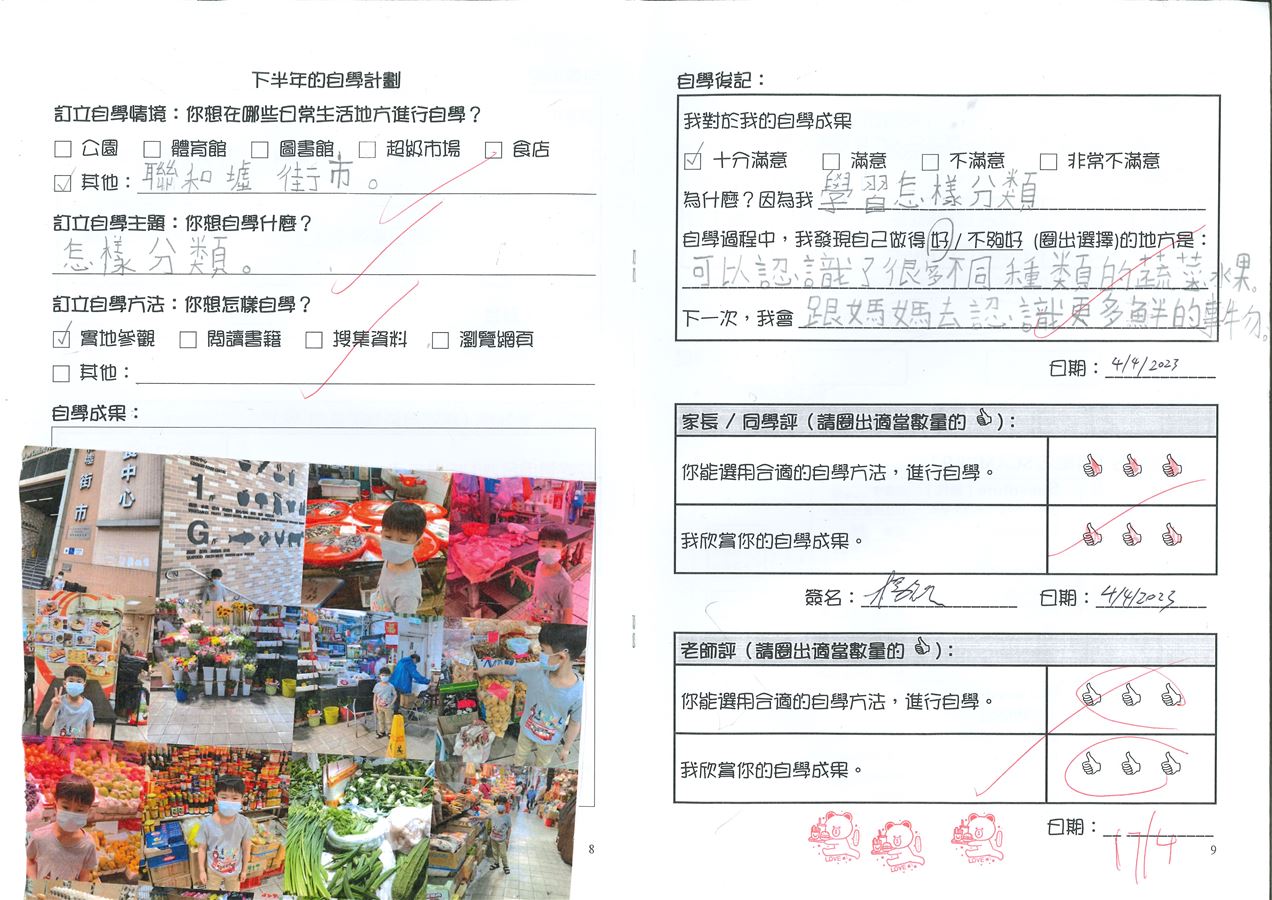 下半年的自學計劃
訂立自學情境：你想在哪些日常生活地方進行自學？
□ 公園 □ 體育館 □ 圖書館 □ 超級市場 □ 食店
☑ 其他：聯和墟 街市。
訂立自學主題：你想自學什麼？
怎樣分類。
訂立自學方法：你想怎樣自學？
☑ 實地參觀 □ 閱讀書籍 □ 搜集資料 □ 瀏覽網頁
□ 其他：
自學成果：
街市
中心
1
G
8
自學後記：
我對於我的自學成果
☑ 十分滿意 □ 滿意 □ 不滿意 □ 非常不滿意
為什麼？因為我 學習怎樣分類
自學過程中，我發現自己做得 好 / 不夠好 (圈出選擇)的地方是：
可以認識了很多不同種類的蔬菜水果。
下一次，我會 跟媽媽去認識更多鮮的事物。
日期：4/4/2023
家長 / 同學評（請圈出適當數量的 ）：
你能選用合適的自學方法，進行自學。
我欣賞你的自學成果。
簽名： 日期：4/4/2023
老師評（請圈出適當數量的 ）：
你能選用合適的自學方法，進行自學。
我欣賞你的自學成果。
LOVE LOVE LOVE
日期：17/4
9